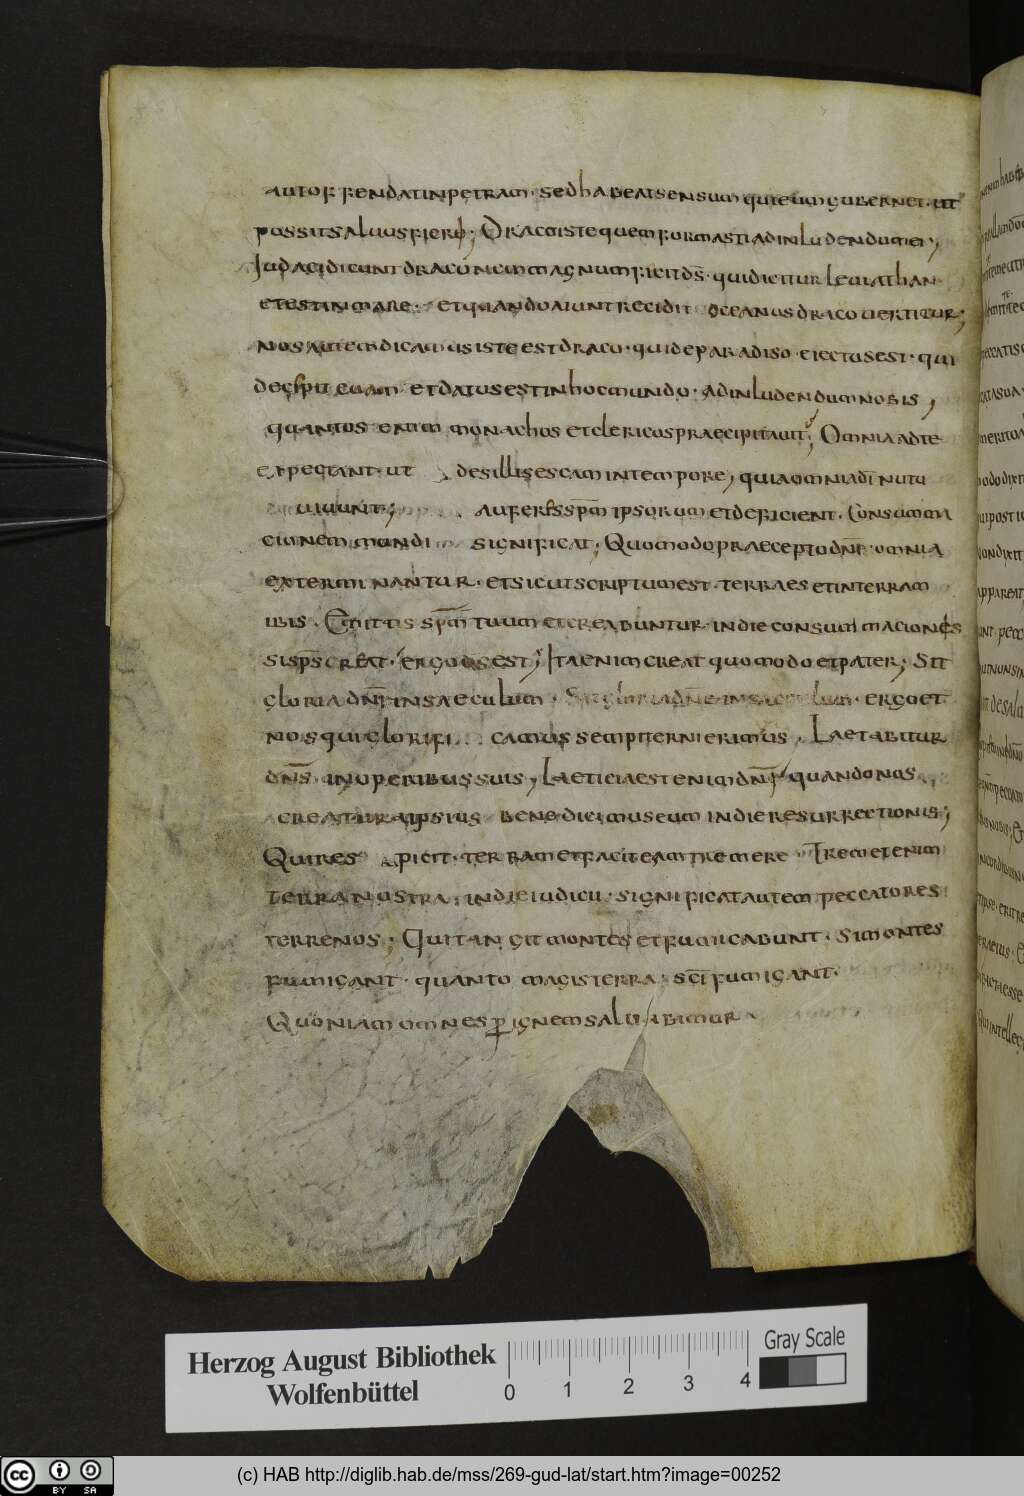 aut offendat in petram. sed habeat sensum qui eum gubernet. ut
possit saluus fieri; Draco iste quem formasti ad inludendum ei,
Iudaei dicunt draconem magnum fecit ds̄. qui dicitur leuiathan
et est in mare. et quando aiunt recidit oceanus draco uertitur;
nos autem dicamus iste est draco. qui de paradiso eiectus est. qui
decepit euam et datus est in hoc mundo. ad inludendum nobis,
quantos enim monachos et clericos praecipitauit; Omnia a te
expectant. ut des illis escam in tempore, quia omnia dī nutu
uiuunt; Auferes sp̄m ipsorum et deficient. Consumma
cionem mundi significat; Quomodo praecepto dn̄i omnia
exterminantur. et sicut scriptum est. terra es et in terram
ibis. Emittis sp̄m tuum et creabuntur in die consummaciones
si sp̄s creat. ergo ds̄ est; Ita enim creat quomodo et pater; Sit
gloria dn̄i in saeculum. Sit gloria dn̄i in saeculum. ergo et
nos qui glorifi camus sempiterni erimus, Laetabitur
dn̄s in operibus suis, Laeticia est enim dn̄i quando nos
creatura ipsius benedicimus eum in die resurrectionis;
Qui respicit terram et facit eam tremere Tremet enim
terra nostra; in die iudicii. significat autem peccatores
terrenos; Qui tangit montes et fumicabunt; Si montes
fumigant. quanto magis terra; sc̄i fumigant.
Quoniam omnes per ignem saluabimur
Herzog August Bibliothek
Wolfenbüttel
0 1 2 3 4
Gray Scale
cc BY SA
(c) HAB http://diglib.hab.de/mss/269-gud-lat/start.htm?image=00252